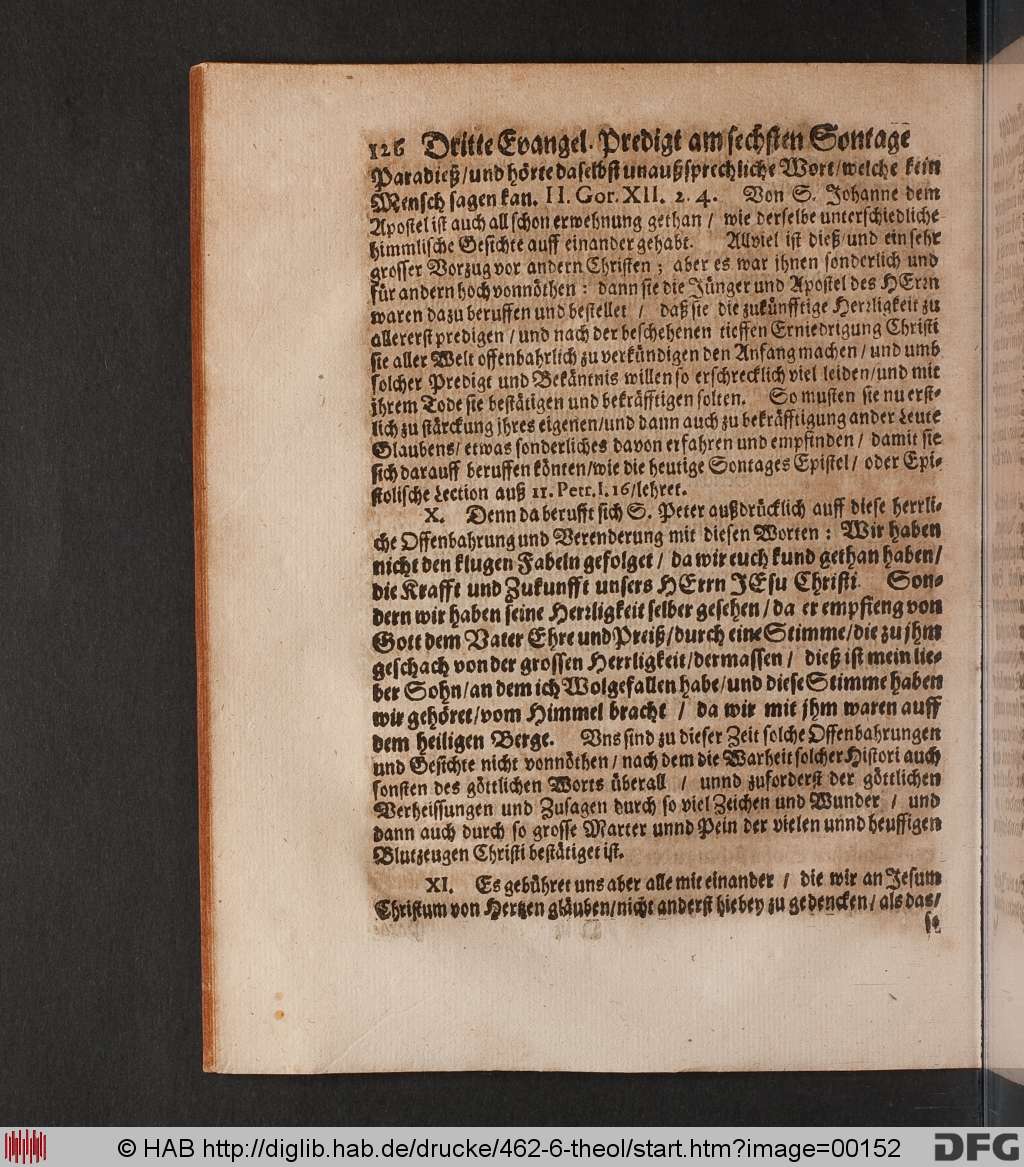 126 Dritte Evangel. Predigt am sechsten Sontage
Paradieß/und hörte daselbst unaußsprechliche Wort/welche kein
Mensch sagen kan. II. Gor. XII. 2. 4. Von S. Johanne dem
Apostel ist auch allschon erwehnung gethan / wie derselbe unterschiedliche
himmlische Gesichte auff einander gehabt. Allviel ist dieß/und ein sehr
grosser Vorzug vor andern Christen ; aber es war jhnen sonderlich und
für andern hoch vonnöthen : dann sie die Jünger und Apostel des HErrn
waren dazu beruffen und bestellet / daß sie die zukünfftige Herrligkeit zu
allererst predigen / und nach der beschehenen tieffen Erniedrigung Christi
sie aller Welt offenbahrlich zu verkündigen den Anfang machen / und umb
solcher Predigt und Bekäntnis willen so erschrecklich viel leiden/und mit
jhrem Tode sie bestätigen und bekräfftigen solten. So musten sie nu erst-
lich zu stärckung jhres eigenen/und dann auch zu bekräfftigung ander Leute
Glaubens/ etwas sonderliches davon erfahren und empfinden / damit sie
sich darauff beruffen könten/wie die heutige Sontages Epistel/ oder Epi-
stolische Lection auß 11. Petr. I. 16/lehret.
X. Denn da berufft sich S. Peter außdrücklich auff diese herrli-
che Offenbahrung und Verenderung mit diesen Worten : Wir haben
nicht den klugen Fabeln gefolget / da wir euch kund gethan haben/
die Krafft und Zukunfft unsers HErrn JEsu Christi. Son-
dern wir haben seine Herrligkeit selber gesehen/da er empfieng von
Gott dem Vater Ehre und Preiß/durch eine Stimme/die zu jhm
geschach von der grossen Herrligkeit/dermassen / dieß ist mein lie-
ber Sohn/an dem ich Wolgefallen habe/und diese Stimme haben
wir gehöret/vom Himmel bracht / da wir mit jhm waren auff
dem heiligen Berge. Vns sind zu dieser Zeit solche Offenbahrungen
und Gesichte nicht vonnöthen / nach dem die Warheit solcher Histori auch
sonsten des göttlichen Worts überall / unnd zuforderst der göttlichen
Verheissungen und Zusagen durch so viel Zeichen und Wunder / und
dann auch durch so grosse Marter unnd Pein der vielen unnd heuffigen
Blutzeugen Christi bestätiget ist.
XI. Es gebühret uns aber alle mit einander / die wir an Jesum
Christum von Hertzen gläuben/nicht anderst hiebey zu gedencken/als das/
se
© HAB http://diglib.hab.de/drucke/462-6-theol/start.htm?image=00152
DFG